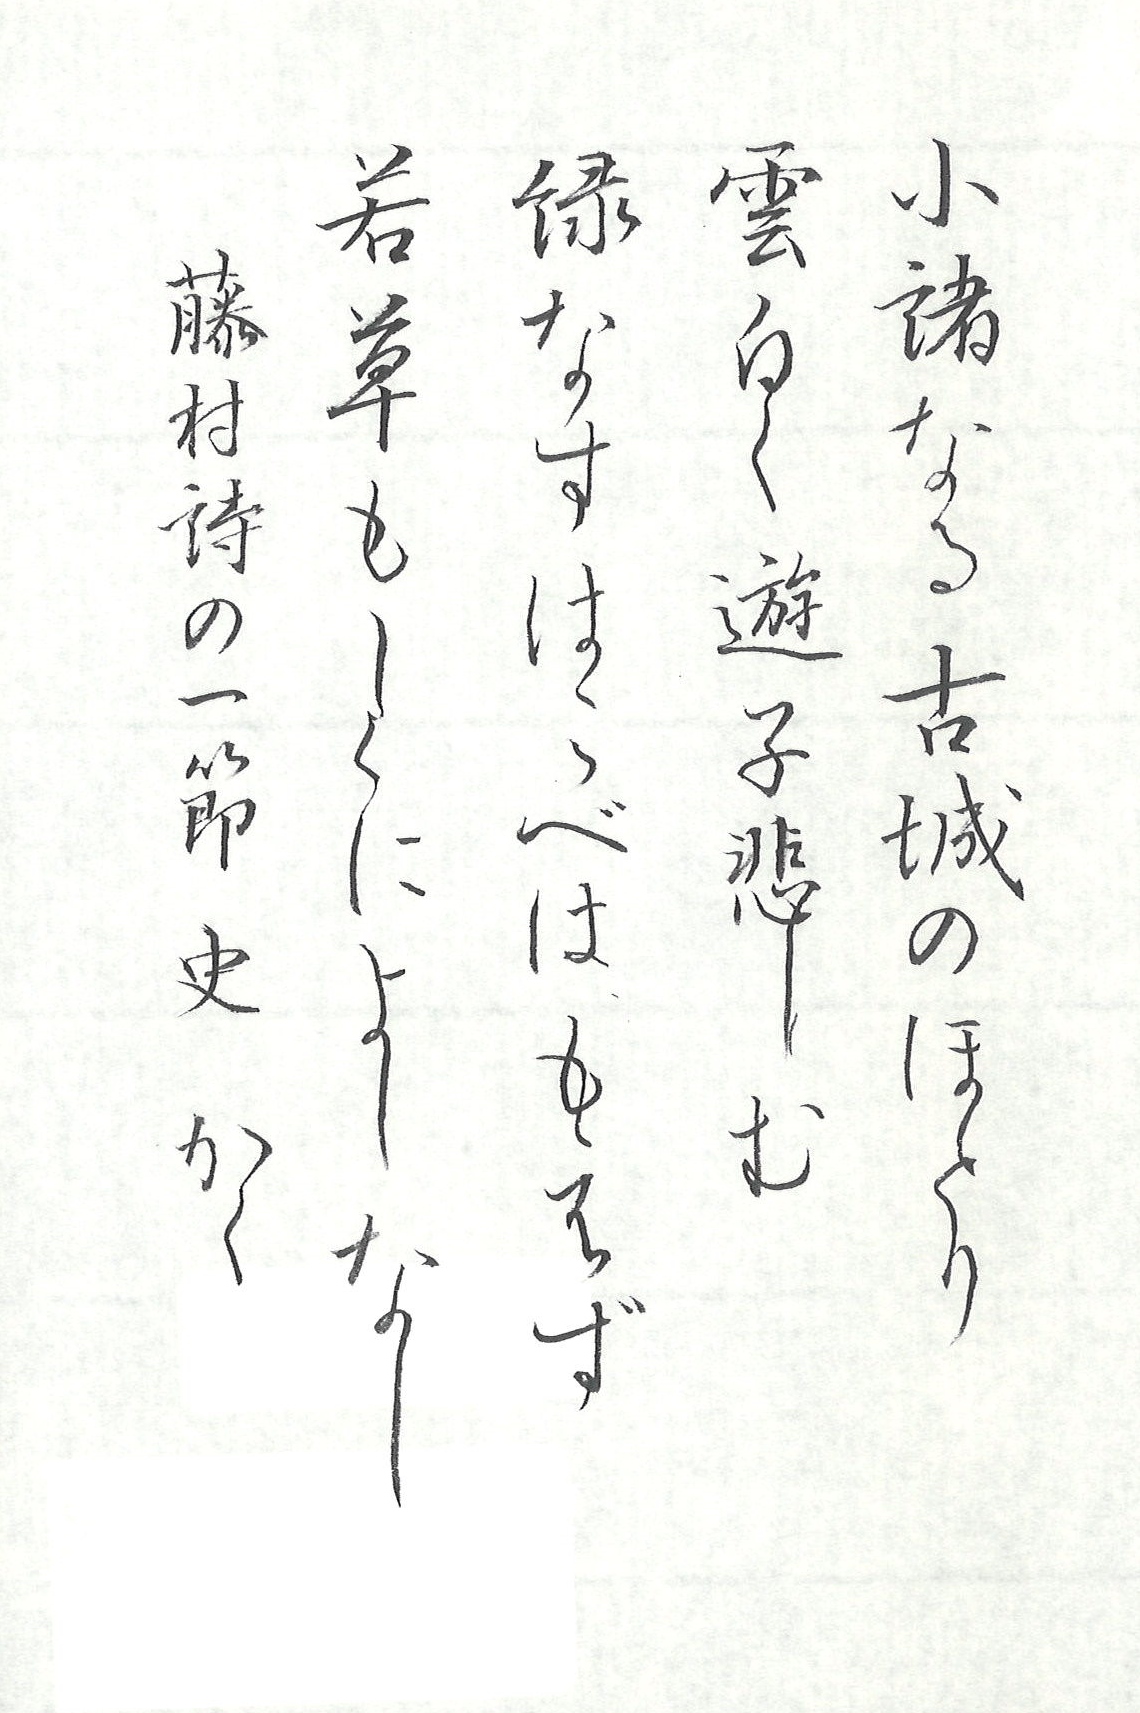 小諸なる古城のほとり
雲白く遊子悲しむ
緑なすはこべはもえず
若草もしくによしなし
藤村詩の一節 史 かく